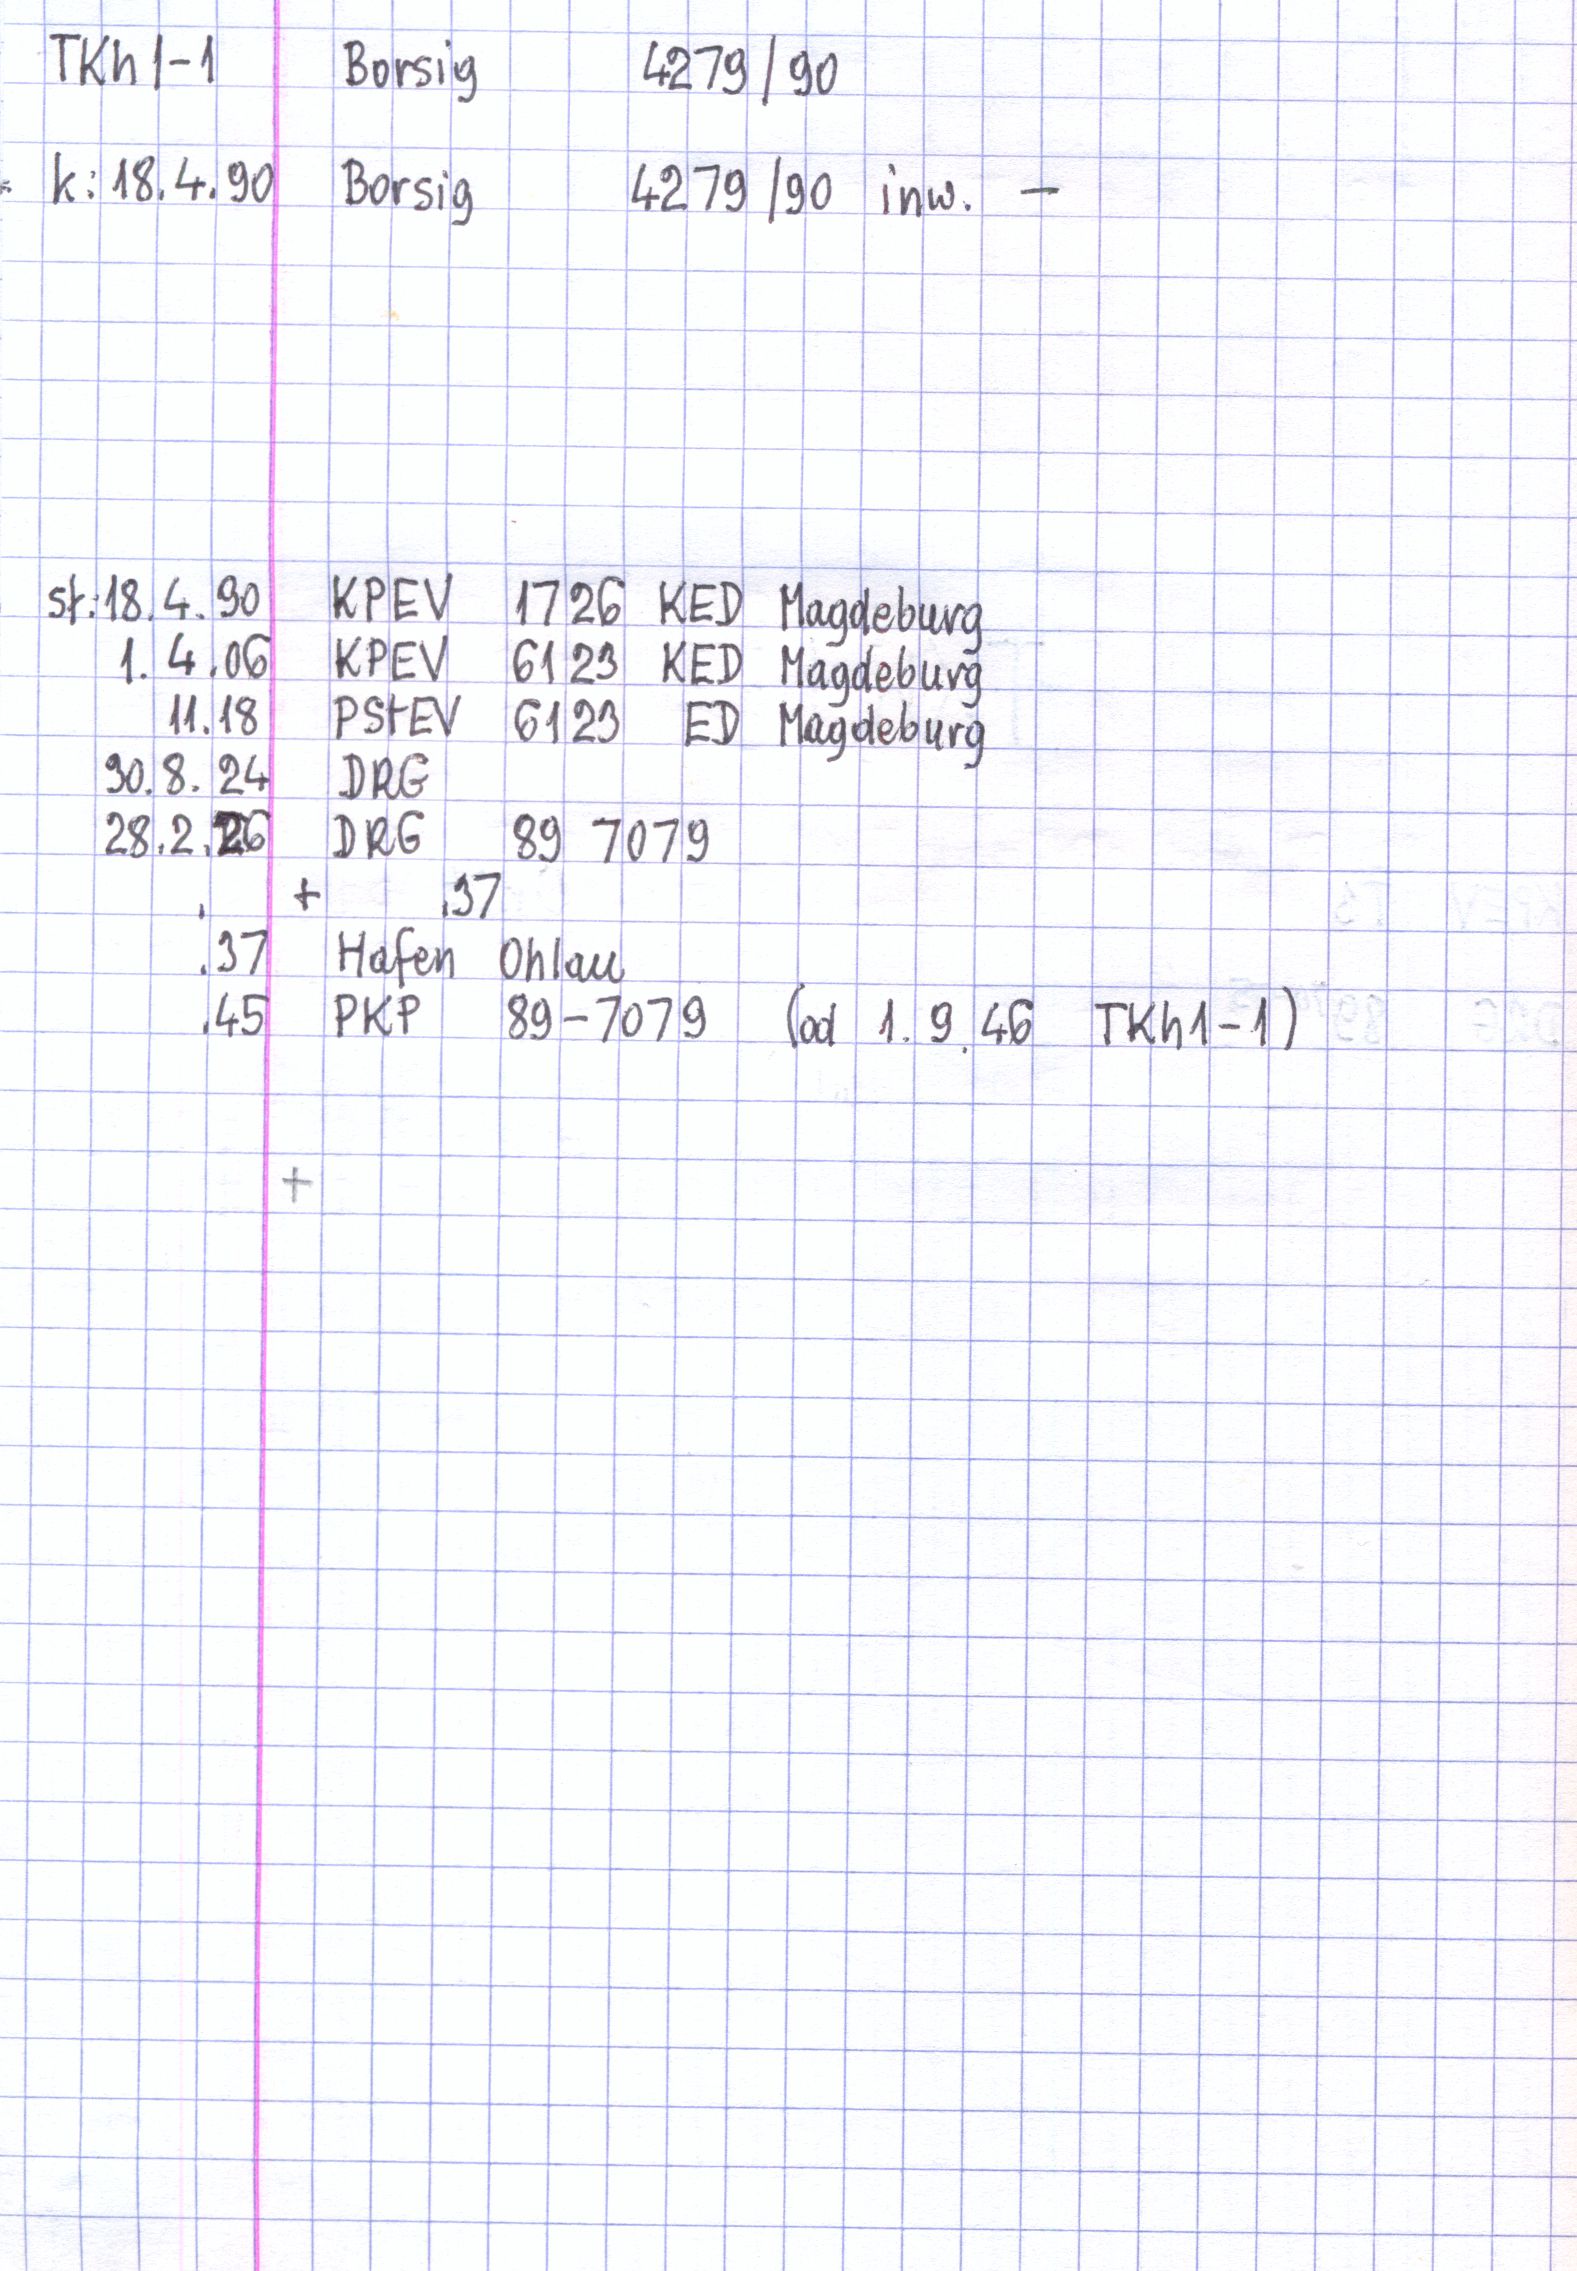 TKh1-1 Borsig 4279/90
k: 18.4.90 Borsig 4279/90 inw. -
st: 18.4.90 KPEV 1726 KED Magdeburg
1.4.06 KPEV 6123 KED Magdeburg
11.18 PStEV 6123 ED Magdeburg
30.8.24 DRG
28.2.26 DRG 89 7079
. + .37
.37 Hafen Ohlau
.45 PKP 89-7079 (od 1.9.46 TKh1-1)
+